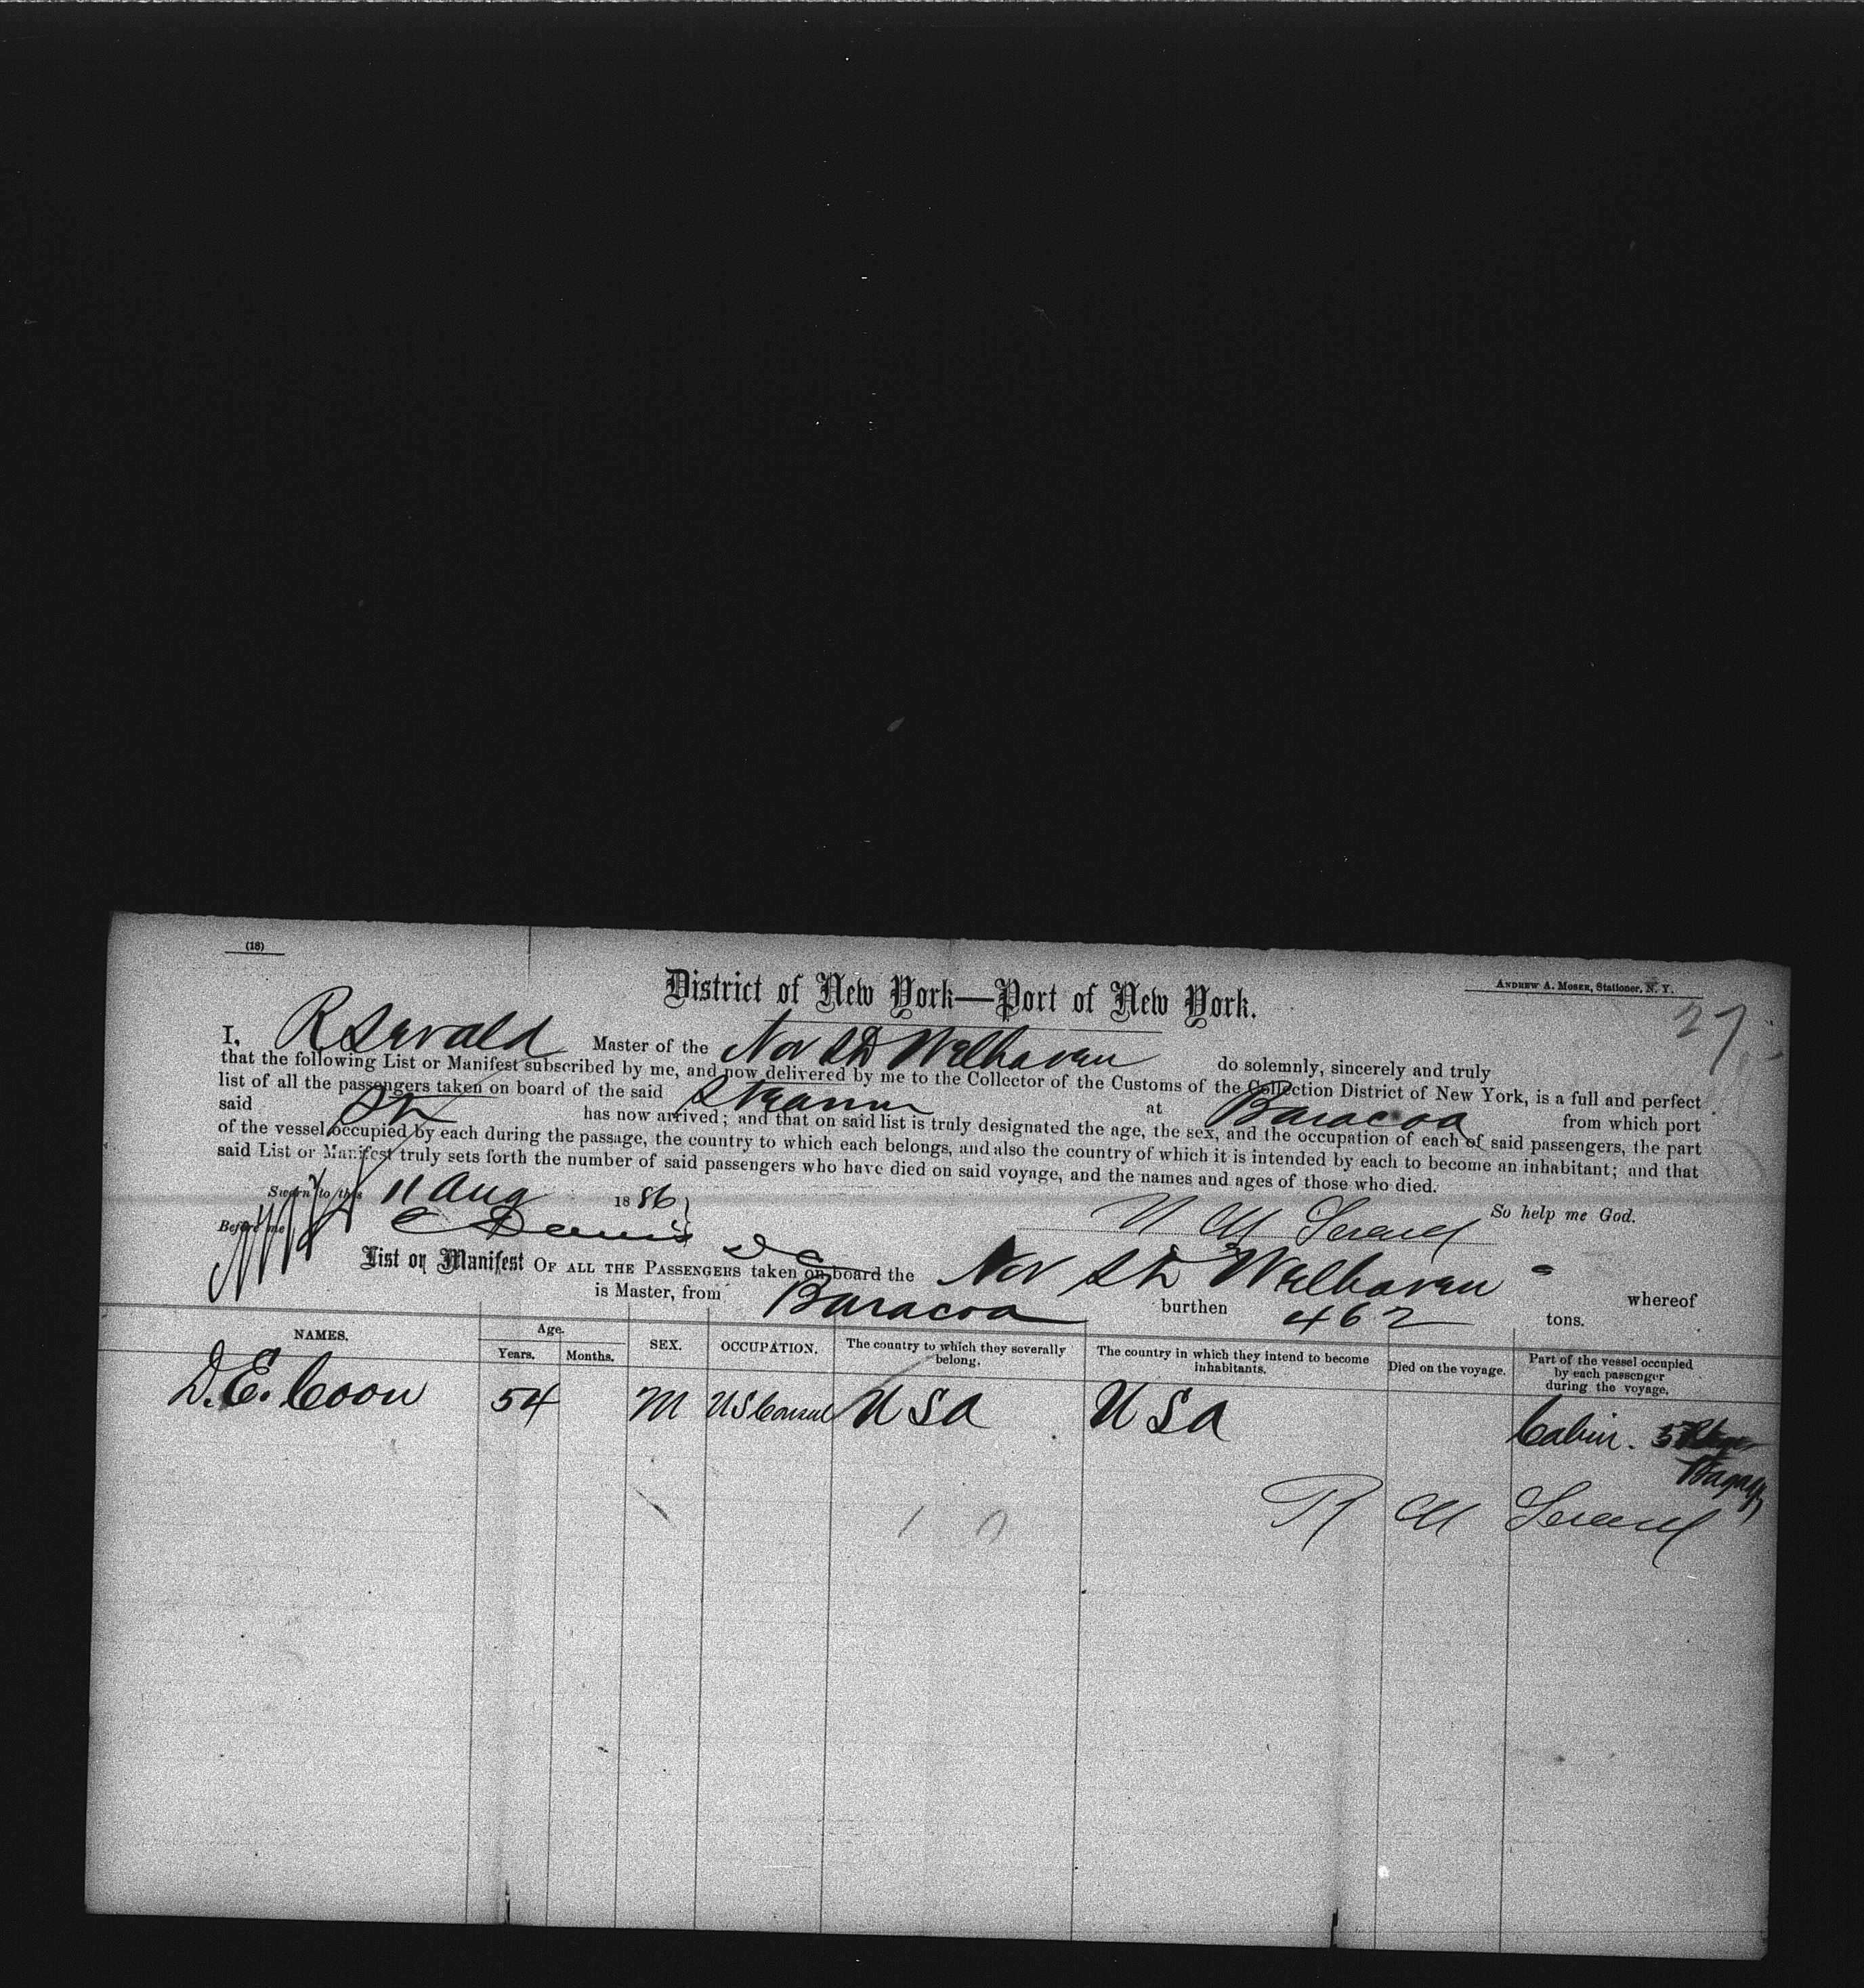 (18)
ANDREW A. MOSER, Stationer, N. Y.
27
District of New York—Port of New York.
I, Master of the Nor Str Welhaven do solemnly, sincerely and truly
that the following List or Manifest subscribed by me, and now delivered by me to the Collector of the Customs of the Collection District of New York, is a full and perfect
list of all the passengers taken on board of the said Steamer at Baracoa from which port
said Str has now arrived; and that on said list is truly designated the age, the sex, and the occupation of each of said passengers, the part
of the vessel occupied by each during the passage, the country to which each belongs, and also the country of which it is intended by each to become an inhabitant; and that
said List or Manifest truly sets forth the number of said passengers who have died on said voyage, and the names and ages of those who died.
So help me God.
Sworn to this 11 Aug 1886
Before me
List or Manifest OF ALL THE PASSENGERS taken on board the Nor Str Welhaven whereof
is Master, from Baracoa burthen 462 tons.
NAMES. Age. Years. Months. SEX. OCCUPATION. The country to which they severally belong. The country in which they intend to become inhabitants. Died on the voyage. Part of the vessel occupied by each passenger during the voyage.
D. E. Coon 54 M US Consul USA USA Cabin. 5